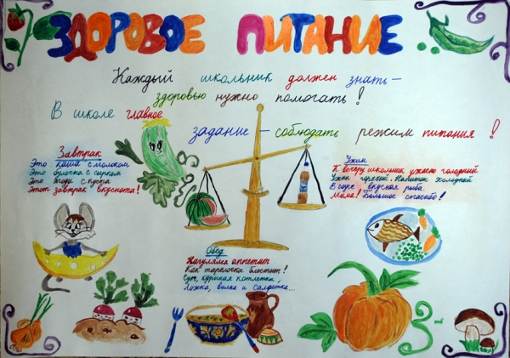 ЗДОРОВОЕ ПИТАНИЕ
Каждый школьник должен знать –
здоровью нужно помогать!
В школе главное
задание – соблюдать режим питания!
Завтрак
Это каша с молоком
Это булочка с сырком
Это ягоды с куста
Этот завтрак вкуснота!
Обед
Нагулялся аппетит
Как тарелочка блестит!
Суп, куриная котлетка,
Ложка, вилка и салфетка...
Ужин
К вечеру школьник ужасно голодный
Ужин горячий. Напиток холодный
В соусе вкусная рыба.
Мама! Большое спасибо!